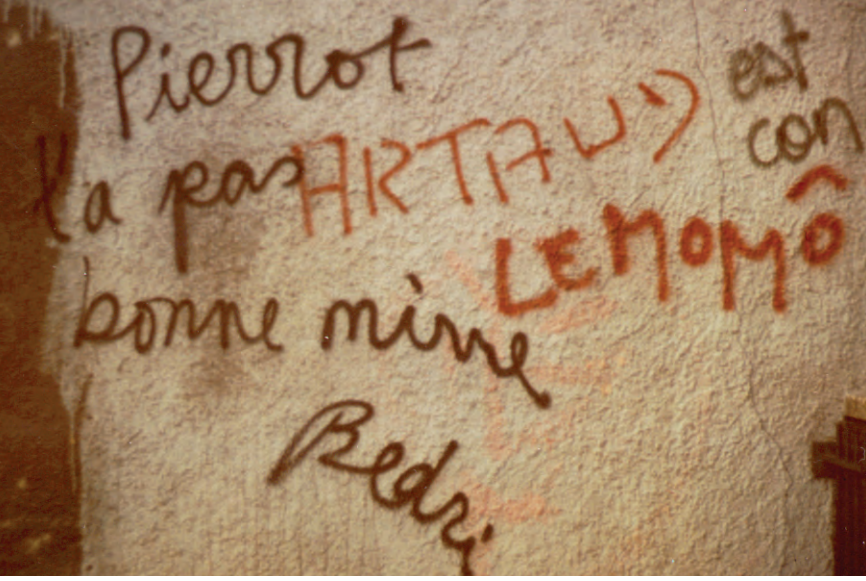 Pierrot
t'a pas
bonne mine
Bedri
ARTAUD
LE MOMÔ
est
con